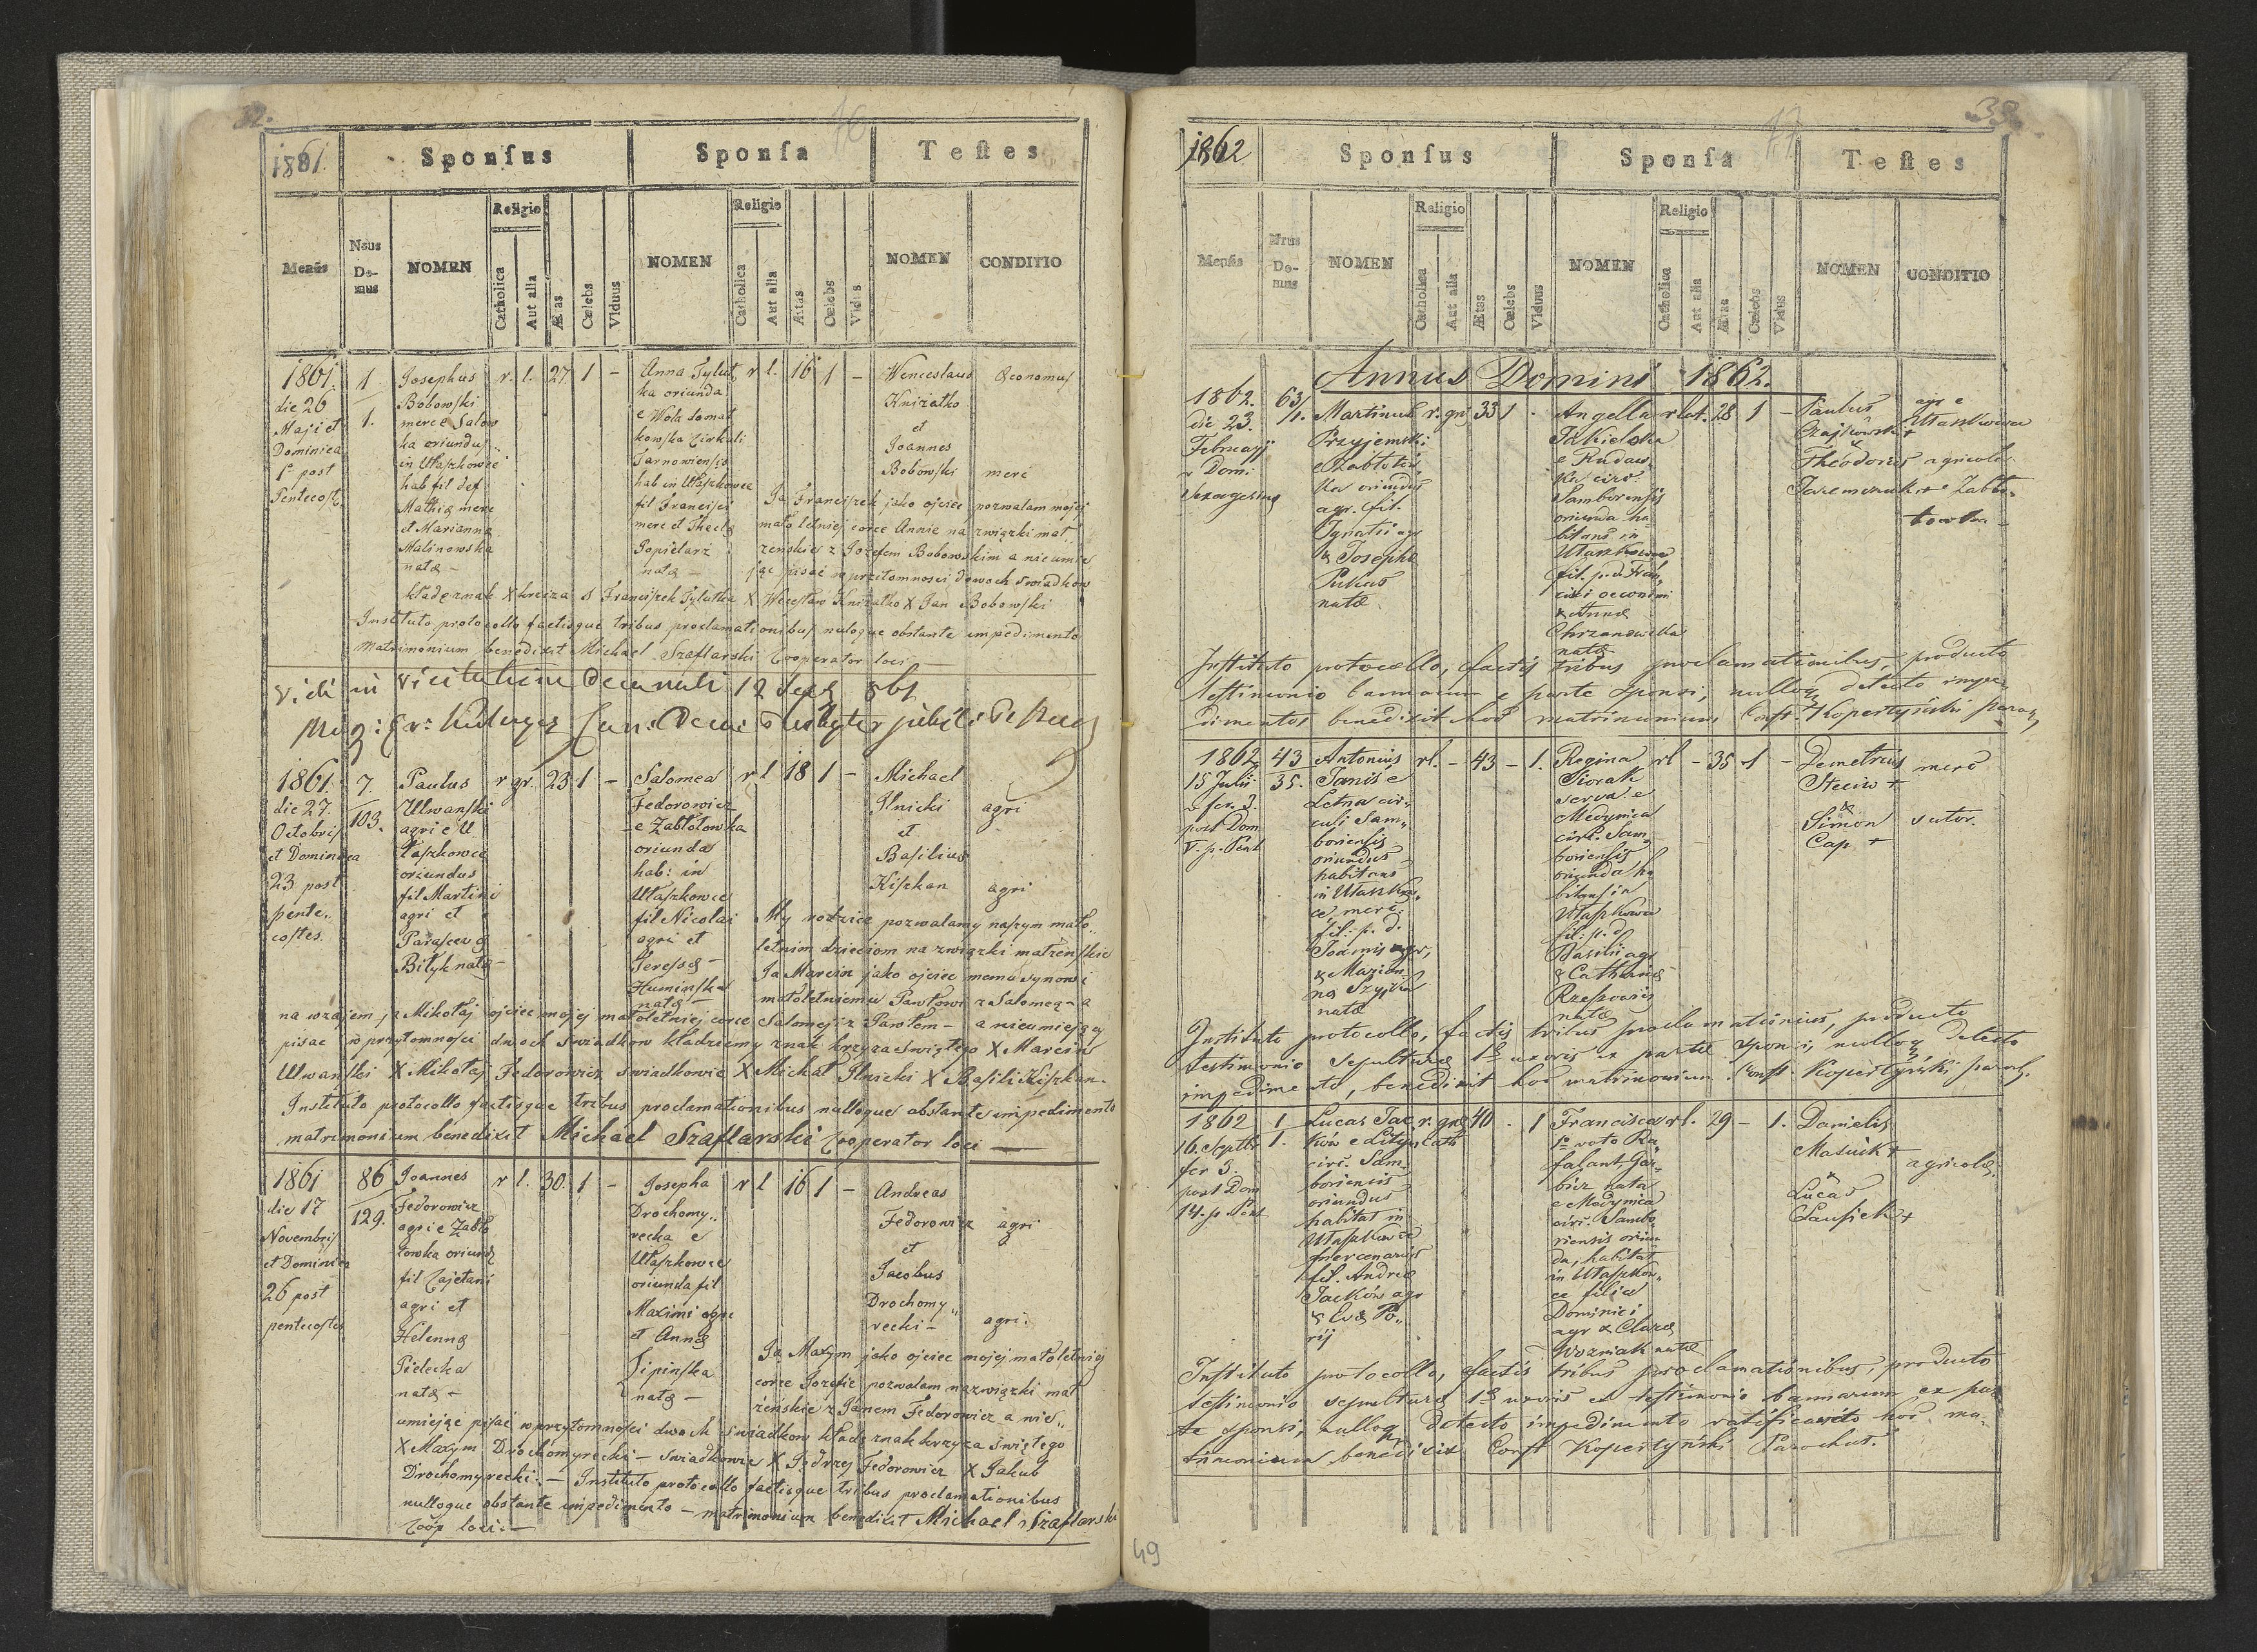 32.
76
1861.
Sponſus
Sponſa
Teſtes
Menſis
Nrus Domus
NOMEN
Religio
Catholica
Aut alia
Ætas
Cælebs
Viduus
NOMEN
Religio
Catholica
Aut alia
Ætas
Cælebs
Vidus
NOMEN
CONDITIO
1861.
die 26
Maji et
Dominica
1ª post
Pentecost.
1.
1.
Josephus
Bobowſki
merc e Salow
ka oriundus
in Ułaſzkowce
hab fil def
Mathiæ merc
et Mariannæ
Malinowska
natæ –
r. l. 27 1 –
Anna Tylut,
ka oriunda
e Wola domat
kowſka Cirkuli
Tarnowienſis
hab in Ułaſzkowce
fil Franciſci
merc et Theclæ
Popielarz
natæ –
r l. 16 1 –
Wenceslaus
Kniżatko
et
Joannes
Bobowſki
Oeconomus
merc
Ja Franciſzek jako ojciec pozwalam mojej
małoletniej corce Annie na związki mał
żenskie z Jozefem Bobowskim a nieumie
jąc pisać w przytomnosci dwoch swiadkow
kładę znak X krzyża S Franciſzek Tylutka X Wacſław Kniżatko X Jan Bobowſki
Instituto protocollo factisque tribus proclamationibus nuloque obstante impedimento
matrimonium benedixit Michael Szaflarski Cooperator loci –
Vidi in visitatione Decanali 12 Sept 861
1861.
die 27.
Octobris
et Dominica
23 post
pente„
costes.
7.
103.
Paulus
Ulwanſki
agri e U
łaſzkowce
oriundus
fil Martini
agri et
Parascevæ
Bilyk natæ –
r gr. 23 1 –
Salomea
Fedorowicz
e Zabłotowka
oriunda
hab: in
Ułaſzkowce
fil Nicolai
agri et
Tereſsæ –
Huminſka
natæ –
r l 18 1 –
Michael
Ilnicki
et
Baſilius
Kiſzkan
agri
agri
My rodzice pozwalamy naſzym mało„
letnim dzieciom na związki małzenſkie
Ja Marcin jako ojciec memu synowi
małoletniemu Pawłowi z Salomeą – a
na wzajem ja Mikołaj ojciec mojej małoletniej corce Salomeji z Pawłem – a nieumiejący
pisac w przytomnoſci dwoch swiadkow kładziemy znak krzyza swiętego X Marcin
Ulwanſki X Mikołaj Fedorowicz swiadkowie X Michał Ilnicki X Baſili Kiſzkan.
Instituto protocollo factisque tribus proclamationibus nulloque obstante impedimento
matrimonium benedixit Michael Szaflarski Cooperator loci –
1861
die 17
Novembris
et Dominica
26 post
pentecoſtes
86
129.
Joannes
Fedorowicz
agri e Zabło
towka oriund
fil Cajetani
agri et
Helennæ
Pielecka
natæ –
r l. 30. 1 –
Josepha
Drochomy„
recka e
Ułaſzkowce
oriunda fil
Maximi agri
et Annæ
Lipinſka
natæ –
r l 16 1 –
Andreas
Fedorowicz
et
Jacobus
Drochomy„
recki –
agri
agri.
Ja Maxym jako ojciec mojej małoletniej
corce Jozefie pozwalam na związki mał
żenskie z Janem Fedorowicz a nie„
umiejąc piſać w przytomnoſci dwoch swiadkow kładę znak krzyza swiętego
X Maxym Drochomyrecki – swiadkowie X Jędrzej Fedorowicz X Jakub
Drochomyrecki: – Instituto protocollo factisque tribus proclamationibus
nulloque obstante impedimento – matrimonium benedixit Michael Szaflarski
Coop loci –
33.
77
1862
Sponſus
Sponſa
Teſtes
Menſis
Nrus Domus
NOMEN
Religio
Catholica
Aut alia
Ætas
Cælebs
Viduus
NOMEN
Religio
Catholica
Aut alia
Ætas
Cælebs
Vidus
NOMEN
CONDITIO
Annus Domini 1862.
1862.
die 23.
Februarij
Domi:
Sexagesima
63/1.
Martinus
Przyjemski
e Zabłotów
ka oriundus
agr. fil.
Ignatii agr
& Josephæ
Pukas
natæ
r. gr 33 1 .
Angella
Jakielska
e Rudaw„
ka circ.
Samborensis
oriunda ha„
bitans in
Ułaszkowce
fil. p. d. Fran„
cisci oeconomi
& Annæ
Chrzanowska
natæ
r lat. 28 1 –
Paulus
Czajkowski +
&
Theodorus
Jaremczuk +
agr e
Ułaszkowce
agricola
e Zabło„
towka –
Instituto protocollo, factis tribus proclamationibus, producto
testimonio bannarum e parte sponsi, nulloq detecto impe„
dimento, benedixit hoc matrimonium Const. Kopertyński paroch
1862
15 Julii
fer. 3.
post Dom
V. p. Pent
43
35.
Antonius
Janis e
Letna cir„
culi Sam„
boriensis
oriundus
habitans
in Ułaszkow„
ce, merc.
fil. p. d.
Joannis agr,
& Marian„
na
natæ
rl. – 43 – 1.
Regina
Siorak
serva e
Medynica
circ. Sam„
boriensis
oriunda ha
bitans in
Ułaſzkowce
fil: p. d.
Basilii agr
& Catharinæ
natæ
rl – 35 1 –
Demetrius
Steciw +
&
Simon
Cap +
merc
sutor.
Instituto protocollo, factis tribus proclamationius, producto
testimonio sepulturæ 1æ uxoris ex parte sponsi, nulloq detecto
impedimento, benedixit hoc matrimonium Const. Kopertyński paroch.
1862
16. Septbr
fer 3.
post Dom
14. p. Pent
1
1.
Lucas Jac
ków e Litynia
circ. Sam„
boriensis
oriundus
habitat in
Ułaſzkowce
mercenarius
fil. Andreæ
Jacków agr
& Evæ Po„
rij
r. gr 40 . 1
Francisca
1º voto Ra„
falant, Gar„
bicz nata
e Medynica
circ. Sambo„
riensis oriun
da, habitat
in Ułaſzkow„
ce filia
Dominici
agr & Claræ
Wozniak natæ
rl. 29 – 1.
Danielis
Masiuk +
&
Lucas
Lausick +
agricolæ
Instituto protocollo, factis tribus proclamationibus, producto
testimonio sepulturæ 1æ uxoris et testimonio bannarum ex par„
te sponsi, nulloq detecto impedimento ratificavito hoc ma„
trimonium benedixit Const Kopertyński Parochus.
49